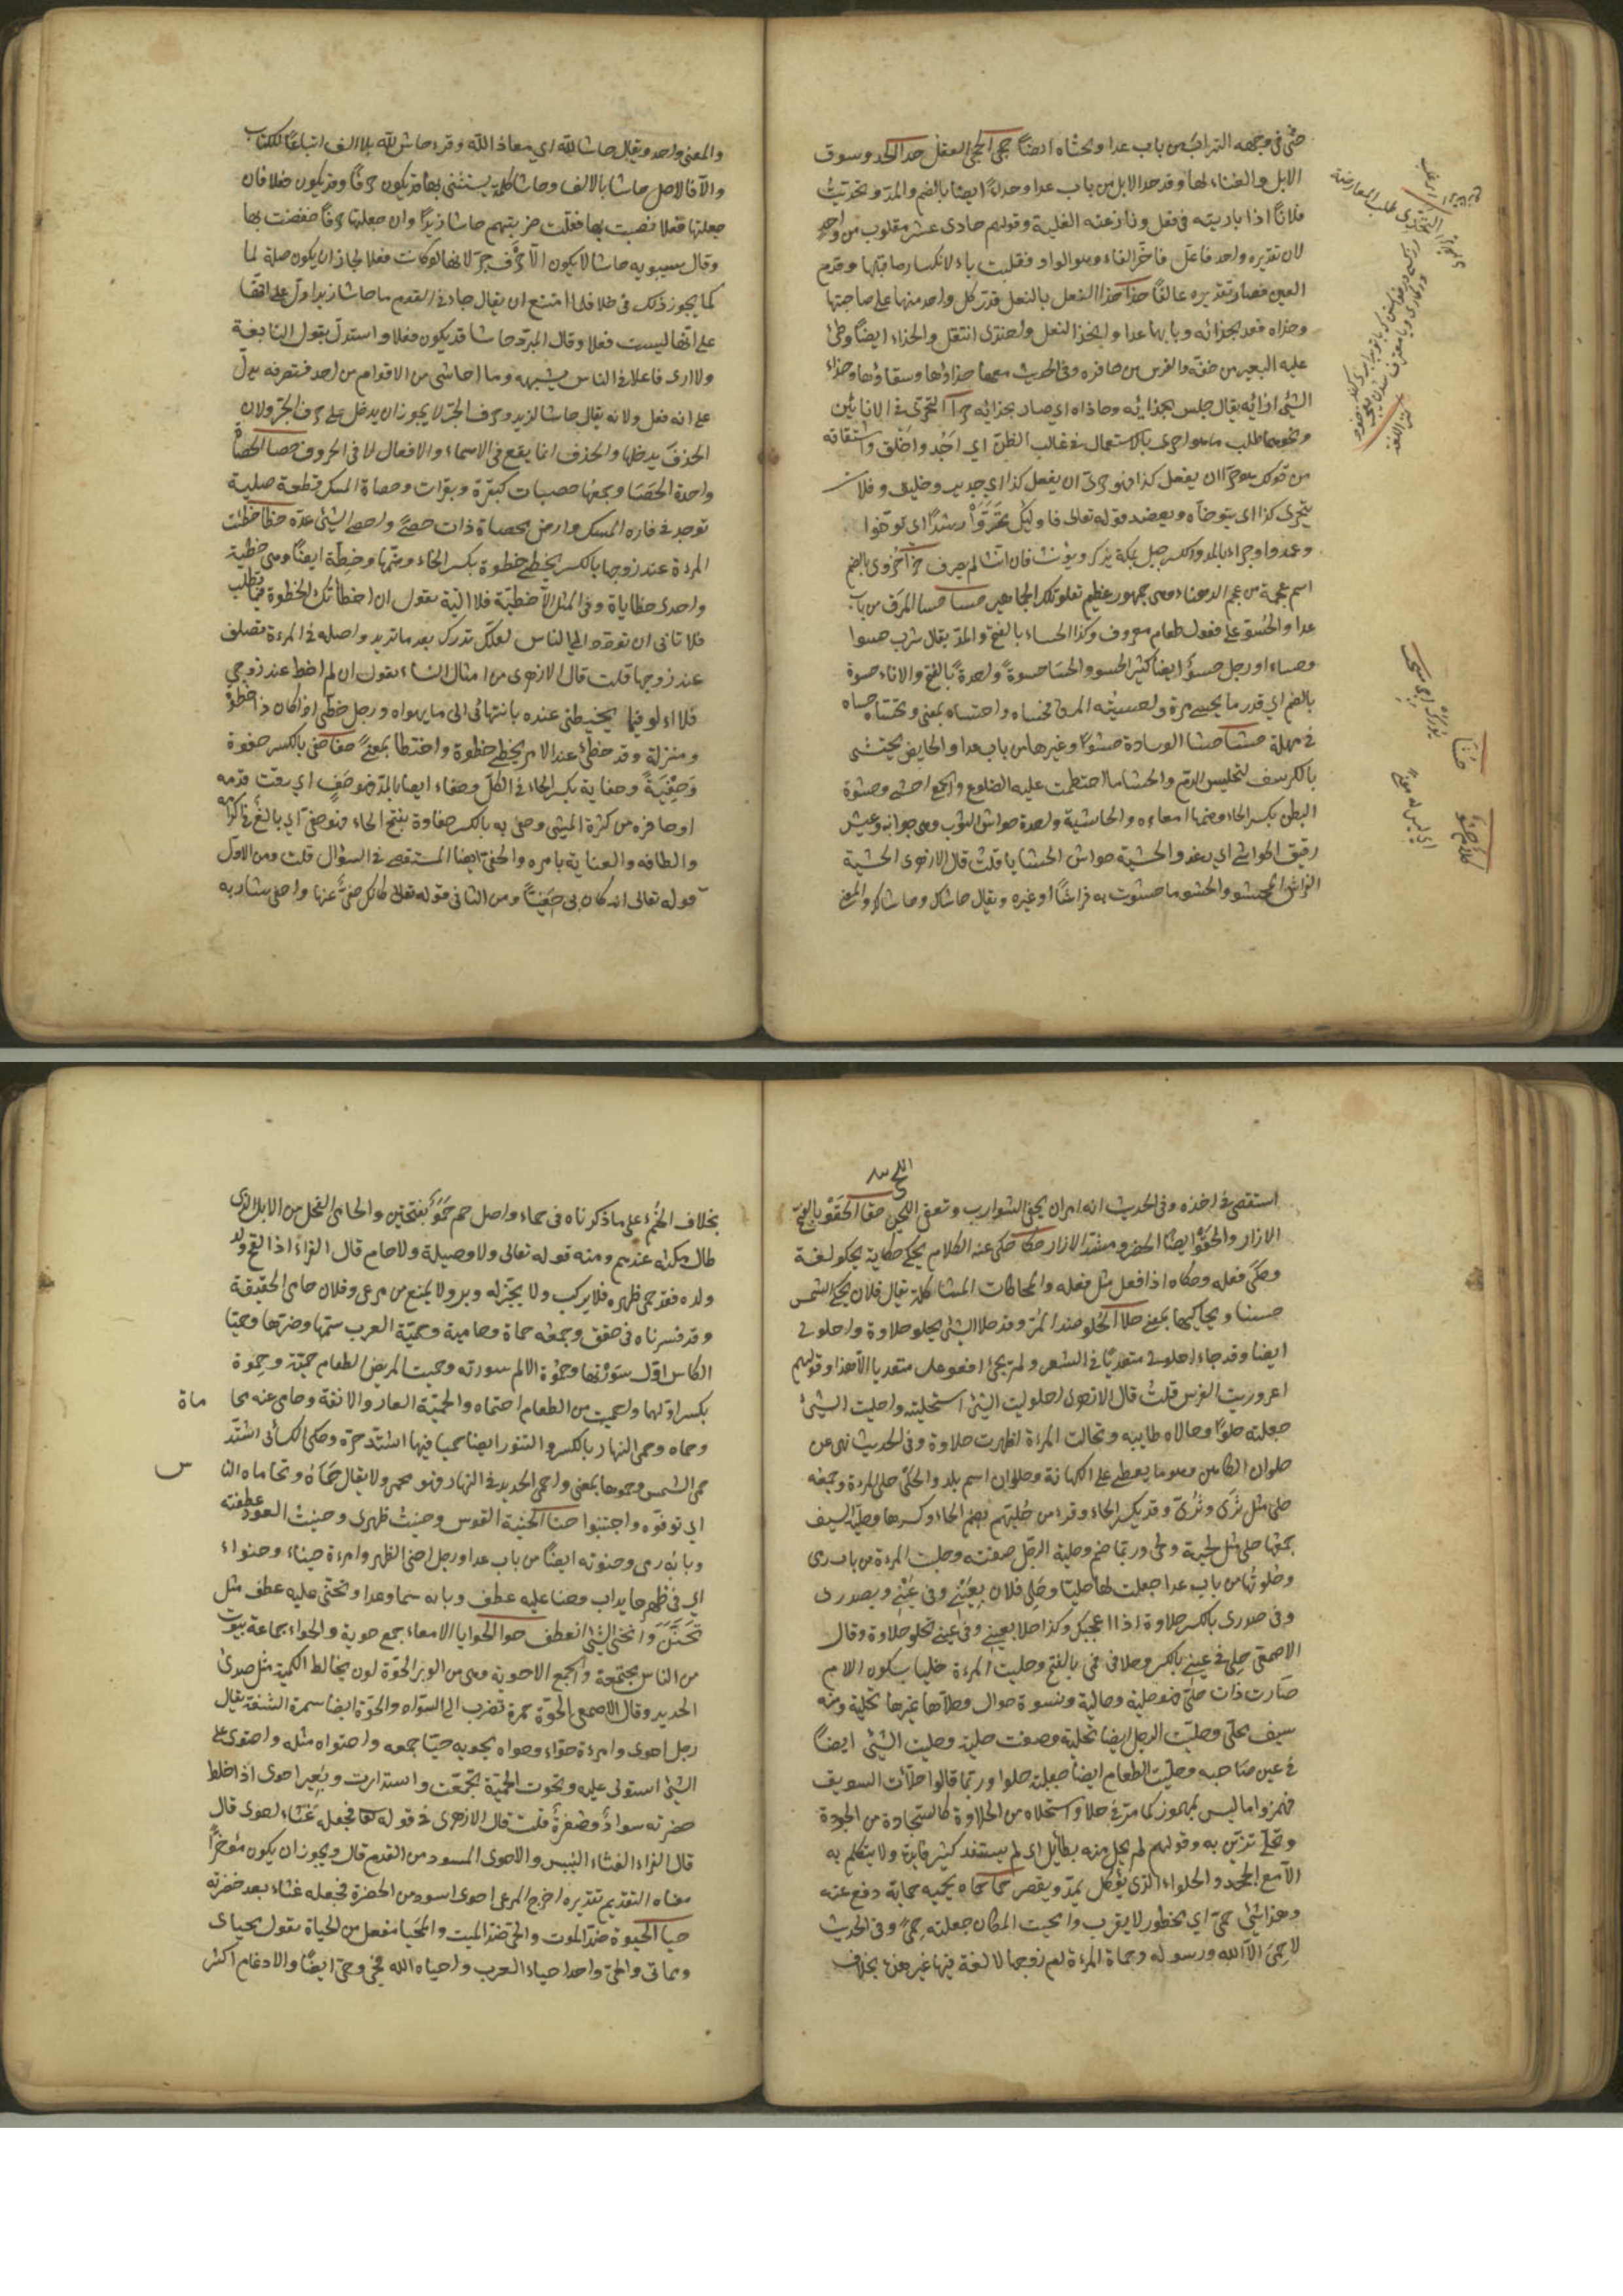 حثى في وجهه التراب من باب عدا وتحثاه ايضاً حجى الحجى العقل حدا الحدو سوق
الابل والغناء لها وقد حدا الابل من باب عدا وحداءً ايضا بالضم والمد وتحديت
فلاناً اذا باريته في فعل ونازعته الغلبة وقولهم حادى عشر مقلوب من واحد
لان تقديره واحد فاعل فاخر الفاء وهو الواو فقلبت ياء لانكسار ما قبلها وقدم
العين فصار تقديره عالفاً حذا حذا النعل بالنعل قدر كل واحد منها على صاحبتها
وحذاه قعد بحذائه وبابهما عدا والحذا النعل واحتذى انتعل والحذاء ايضاً وطئ
عليه البعير من خفه والفرس من حافره وفى الحديث معها حذاؤها وسقاؤها وحذاء
الشئ ازائه يقال جلس بحذائه وحاذاه اي صار بحذائه حرا التحرى فى الانائين
ونحوهما طلب ما هو احرى بالاستعمال في غالب الظن اي اجدر واخلق واشتقاقه
من قولك هو حرا ان يفعل كذا فهو حرى ان يفعل كذا اي جدير وخليق وفلان
يتحرى كذا اى يتوخاه ويعضد قوله تعالى فاولئك تحروا رشدا اى توخوا
وعمدوا وحراء بالمد والكسر جبل بمكة يذكر ويؤنث فان انث لم يصرف حزا حزوى بالضم
اسم عجمة من عجم الدهناء وهى جمهور عظيم تعلو تلك الجماهير حسا حسا المرق من باب
عدا والحسو على فعول طعام معروف وكذا الحساء بالفتح والمد يقال شرب حسوا
وحساء ورجل حسو ايضا كثير الحسو والحسا حسوة واحدة بالفتح والاناء حسوة
بالضم اي قدر ما يحسى مرة واحسيته المرق فحساه واحتساه بمعنى وتحساه حساه
في مهلة حشا حشا الوسادة حشوا وغيرها من باب عدا والحايض تحتشى
بالكرسف لتحبس الدم والحشا ما احتطمت عليه الضلوع والجمع احشى وحشوة
البطن بكسر الحاء وضمها امعاءه والحاشية واحدة حواشى الثوب وهى جوانبه وعيش
رقيق الحواشى اي رغد والحشية حواش الحشايا قلت قال الازهرى الحشية
الفراش المحشو والحشو ما حشوت به فراشاً اوغيره ويقال حاشاك وحاشالك والمعنى
حشا
كلام حشو
والمعنى واحد ويقال حاشا لله اي معاذ الله وقرء حاش لله بلا الف اتباعا للكتاب
والا فالاصل حاشا بالالف وحاشا كلمة يستثنى بها قد يكون حرفا وقد يكون فعلا فان
جعلتها فعلا نصبت بها فقلت ضربتهم حاشا زيدا وان جعلتها حرفا خفضت بها
وقال سيبويه حاشا لا يكون الا حرف جر لانها لو كانت فعلا لجاز ان يكون صلة لما
كما يجوز ذلك فى خلا فلما امتنع ان يقال جاءنى القوم ما حاشا زيدا دل على انها
على انها ليست فعلا وقال المبرد حاشا قد يكون فعلا واستدل بقول النابغة
ولا ارى فاعلا فى الناس يشبهه وما احاشى من الاقوام من احد فتصرفه يدل
على انه فعل ولانه يقال حاشا لزيد وحرف الجر لا يجوز ان يدخل على حرف الجر ولان
الحذف يدخلها والحذف انما يقع فى الاسماء والافعال لا فى الحروف حصا الحصاة
واحدة الحصا وجمعها حصيات كبقرة وبقرات وحصاة المسك قطعة صلبة
توجد في فارة المسك وارض محصاة ذات حصى واحصى الشئ عده حظا حظيت
المرءة عند زوجها بالكسر يحظى حظوة بكسر الحاء وضمها وحظة ايضا وهى حظية
واحدى حظاياه وفى المثل الا حظية فلا الية يقول ان اخطأتك الحظوة فيما تطلب
فلا تانى ان تودد الى الناس لعلك تدرك بعد ما تريد واصله فى المرءة تصلف
عند زوجها قلت قال الازهرى من امثال النساء تقول ان لم احظ عند زوجى
فلا الو فيما يحظينى عنده بانتهائى الى ما يهواه ورجل حظى اذا كان ذا حظوة
ومنزلة وقد حظى عند الامير يحظى حظوة واحتظا بمعنى حفا حفى بالكسر حفوة
وحفية وحفاية بكسر الحاء فى الكل وحفاء ايضا بالمد فهو حفٍ اي رقت قدمه
اوحافره من كثرة المشى وحفى به بالكسر حفاوة بفتح الحاء فهو حفى اي بالغ فى اكرامه
والطافه والعناية بامره والحفى ايضا المستقصى فى السؤال قلت ومن الاول
قوله تعالى انه كان بى حفيا ومن الثانى قوله تعالى كانك حفى عنها واحفى شاربه
استقصى فى اخذه وفى الحديث انه امر ان يحفى الشوارب وتعفى اللحى حقا الحقو بالفتح
الازار والحقو ايضا الخصر ومشد الازار حكا حكى عنه الكلام يحكى حكاية يحكو لغة
وحكى فعله وحكاه اذا فعل مثل فعله والمحاكات المشاكلة يقال فلان يحكى الشمس
حسنا ويحاكيها بمعنى حلا الحلو ضد المر وقد حلا الشئ يحلو حلاوة واحلولى
ايضا وقد جاء احلولى متعديا فى الشعر ولم يجئ افعوعل متعديا الا هذا وقولهم
اعروريت الفرس قلت قال الازهرى احلوليت الشئ استحليته واحليت الشئ
جعلته حلوا وحالاه طايبه وتحالت المرءة اظهرت حلاوة وفى الحديث نهى عن
حلوان الكاهن وهو ما يعطى على الكهانة وحلوان اسم بلد والحلى حلى المرءة وجمعه
حلى مثل ثدى وثدى وقد يكسر الحاء وقرء من حليهم بضم الحاء وكسرها وحلية السيف
جمعها حلى مثل لحية ولحى وربما ضم وحلية الرجل صفته وحليت المرءة من باب رمى
وحلوتها من باب عدا جعلت لها حليا وحلى فلان بعينى وفى عينى وبصدرى
وفى صدرى بالكسر حلاوة اذا اعجبك وكذا حلا بعينى وفى عينى تحلو حلاوة وقال
الاصمعى حلى فى عينى بالكسر وحلا فى فمى بالفتح وحليت المرءة حليا بسكون اللام
صارت ذات حلى فهو حلية وحالية ونسوة حوال وحلاها غيرها تحلية ومنه
سيف محلى وحليت الرجل ايضا تحلية وصفت حلية وحليت الشئ ايضاً
فى عين صاحبه وحليت الطعام ايضا جعلته حلوا وربما قالوا حلأت السويق
فهمزوا ما ليس بمهموز كما مر فى حلا واستحلاه من الحلاوة كاستجادة من الجودة
وتحلى تزين به وقولهم لم يحل منه بطائل اى لم يستفد كثير فايدة ولا يتكلم به
الا مع الجحد والحلواء الذى يؤكل يمد ويقصر حما حماه يحميه حماية دفع عنه
وهذا شئ حمى اى محظور لا يقرب واحميت المكان جعلته حمى وفى الحديث
لا حمى الا لله ورسوله وحماة المرءة ام زوجها لا لغة فيها غير هذه بخلاف
بخلاف الحمء على ما ذكرناه فى حماء واصل حم حمو بفتحتين والحامى الفحل من الابل الذى
طال مكثه عندهم ومنه قوله تعالى ولا وصيلة ولا حام قال الفراء اذا لقح ولد
ولده فقد حمى ظهره فلا يركب ولا يجزله وبر ولا يمنع من مرعى وفلان حامى الحقيقة
وقد فسرناه فى حقق وجمعه حماة وحامية وحمية العرب سمها وضرها وحميا
الكاس اول سورتها وحموة الالم سورته وحميت المريض الطعام حمية وحموة
بكسر اولهما واحميت من الطعام احتماه والحمية العار والانفة وحامى عنه محا
ماة
وحماه وحمى النهار بالكسر والتنور ايضا حميا فيهما اشتد حره وحكى الكسائى اشتد
حمى الشمس وحموها بمعنى واحمى الحديد فى النهار فهو محمى ولا يقال حماه وتحاماه النا
س
اي توقوه واجتنبوا حنا الحنية القوس وحنيت ظهرى وحنيت العود عطفته
وبابه رمى وحنوته ايضاً من باب عدا ورجل احنى الظهر وامرءة حنياء وحنواء
اي فى ظهرها احديداب وحنا عليه عطف وبابه سما وعدا وتحنى عليه عطف مثل
تحنن وانحنى الشئ انعطف حوا الحوايا الامعاء جمع حوية والحواء جماعة بيوت
من الناس مجتمعة والجمع الاحوية وهى من الوبر الحوة لون يخالط الكمتة مثل صدئ
الحديد وقال الاصمعى الحوة حمرة تضرب الى السواد والحوة ايضا سمرة الشفة يقال
رجل احوى وامرءة حواء وحواه يحويه حيا جمعه واحتواه مثله واحتوى على
الشئ استولى عليه وتحوت الحية تجمعت واستدارت وبعير احوى اذا خلط
خضرته سواد وصفرة قلت قال الازهرى فى قوله تعا فجعله غثاء احوى قال
قال الفراء الغثاء اليبيس والاحوى المسود من القدم قال ويجوز ان يكون مؤخراً
معناه التقديم تقديره اخرج المرعى احوى اسود من الخضرة فجعله غثاء بعد خضرته
حيا الحيوة ضد الموت والحى ضد الميت والمحيا مفعل من الحياة تقول محياى
ومماتى والحى واحد احياء العرب واحياه الله فحيى وحى ايضاً والادغام اكثر